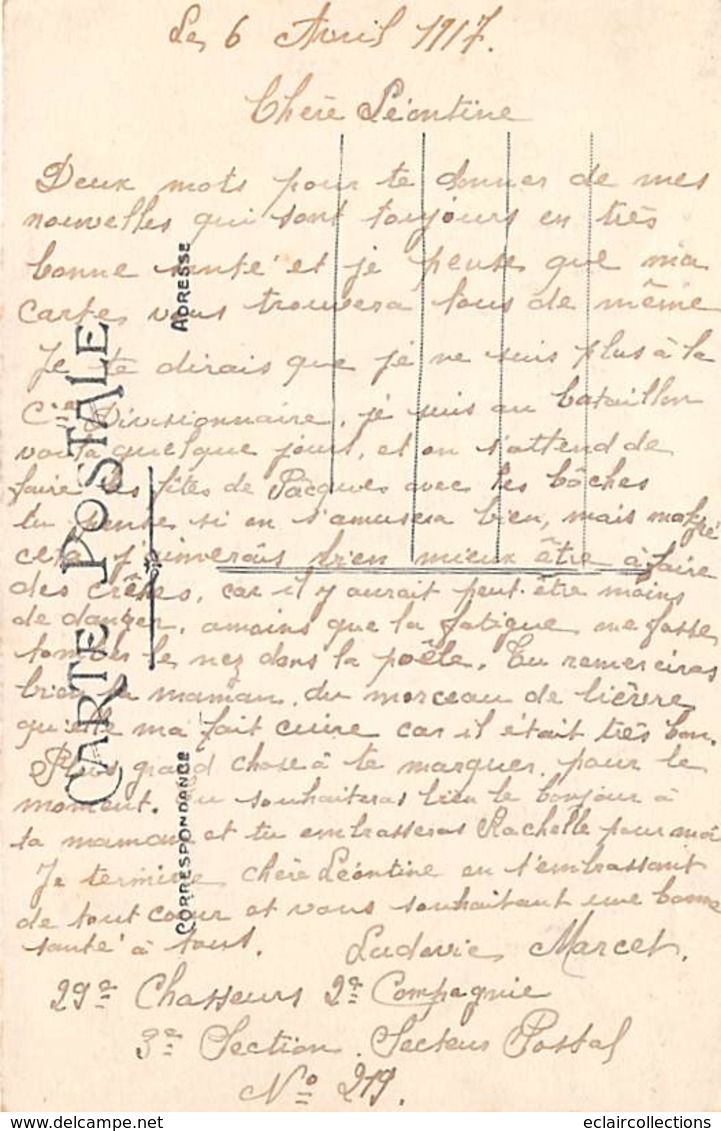 Le, 6 Avril 1917.
Chère Léontine
Deux mots pour te donner de mes
nouvelles qui sont toujours en très
bonne santé et je pense que ma
carte, vous trouvera tous de même
Je te dirais que je ne suis plus à la
Cie Divisionnaire, je suis au bataillon
voila quelque jours, et on s'attend de
faire les fêtes de Pâcques avec les bôches
tu pense si on s'amusera bien, mais malgré
cela j'aimerais bien mieux être à faire
des crêpes, car il y aurait peut-être moins
de danger, amoins que la fatigue me fasse
tomber le nez dans la poêle. Tu remerciras
bien ta maman, du morceau de lièvre
qu'elle ma fait cuire car il était très bon.
Plus grand chose à te marquer pour le
moment. Tu souhaiteras bien le bonjour à
ta maman et tu embrasseras Rachelle pour moi
Je termine chère Léontine en t'embrassant
de tout cœur et vous souhaitant une bonne
santé à tous. Ludovic Marcet.
29e Chasseurs 2e Compagnie
3e Section. Secteur Postal
No 219.
CARTE POSTALE
ADRESSE
CORRESPONDANCE
eclaircollections